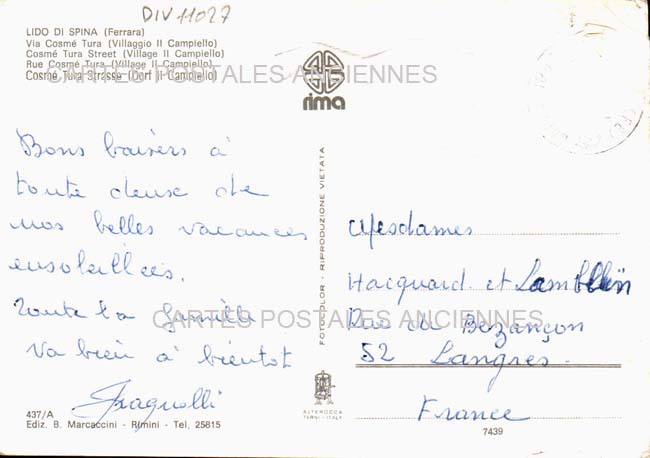 DIV 11027
LIDO DI SPINA (Ferrara)
Via Cosmé Tura (Villaggio Il Campiello)
Cosmé Tura Street (Village Il Campiello)
Rue Cosmé Tura (Village Il Campiello)
Cosmé Tura Strasse (Dorf Il Campiello)
CARTES POSTALES ANCIENNES
rima
Bons baisers à
toute deuse de
nos belles vacances
ensoleillées.
Toute la famille
va bien à bientot
437/A
Ediz. B. Marcaccini - Rimini - Tel. 25815
FOTOCOLOR - RIPRODUZIONE VIETATA
ALTEROCCA
TERNI - ITALY
Mesdames
Hacquard et Lambllin
Rue de Bezançon
52 Langres
France
7439
CARTES POSTALES ANCIENNES